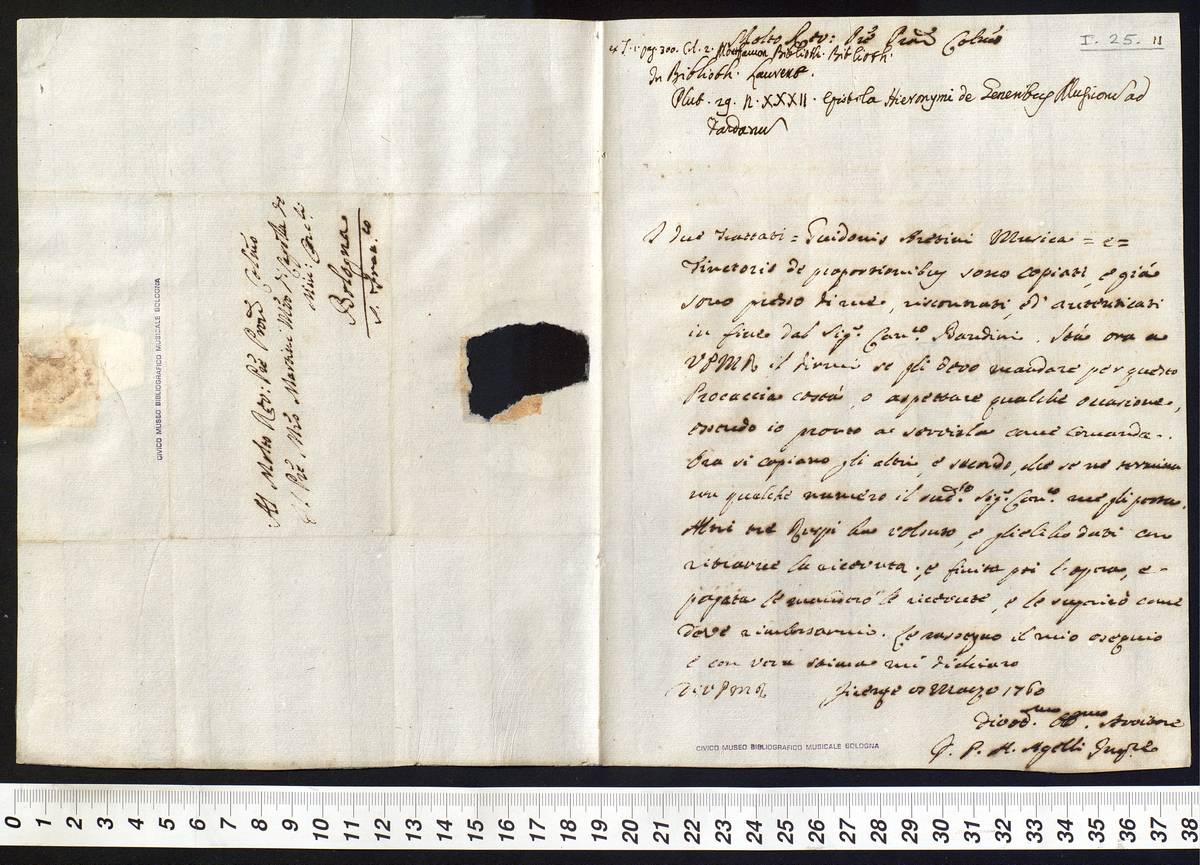 Al Molto Rev: Pre Prone Colmo
Il Pre Mro Martini Mro di Capella de
Min: Conli
Bologna
S. Franco
CIVICO MUSEO BIBLIOGRAFICO MUSICALE BOLOGNA
I. 25. 11
Molto Rev: Pre Prone Colmo
ex T. 1. pag 300. Col. 2. Biblioth. Biblioth.
In Biblioth. Laurent.
Plut. 29. N. XXXII. Epistola Hieronymi de Generibus Musicorum ad
Dardanum
I due Trattati = Guidonis Aretini Musica = e =
Tinctoris de proportionibus sono copiati, e già
sono presso di me, riscontrati, ed autenticati
in fine dal Sigr. Canco. Bandini. Stà ora a
VPMR il dirmi se gli devo mandare per questo
Procaccia costà, o aspettare qualche occasione,
essendo io pronto a servirla come comanda.
Ora si copiano gli altri, e secondo, che se ne termina
un qualche numero il sudo. Sigr. Canco. me gli porta.
Altri tre Ruspi ha voluto, e glieli ho dati con
ritrarne la ricevuta; e finita poi l'opera, e
pagata le manderò le ricevute, e le suggerirò come
deve rimborsarmi. Le rassegno il mio ossequio
e con vera stima mi dichiaro
Di VPMR Firenze Marzo 1760
Divodmo. Obmo. Servitore
F. P. M. Agelli Inqre
CIVICO MUSEO BIBLIOGRAFICO MUSICALE BOLOGNA
0 1 2 3 4 5 6 7 8 9 10 11 12 13 14 15 16 17 18 19 20 21 22 23 24 25 26 27 28 29 30 31 32 33 34 35 36 37 38